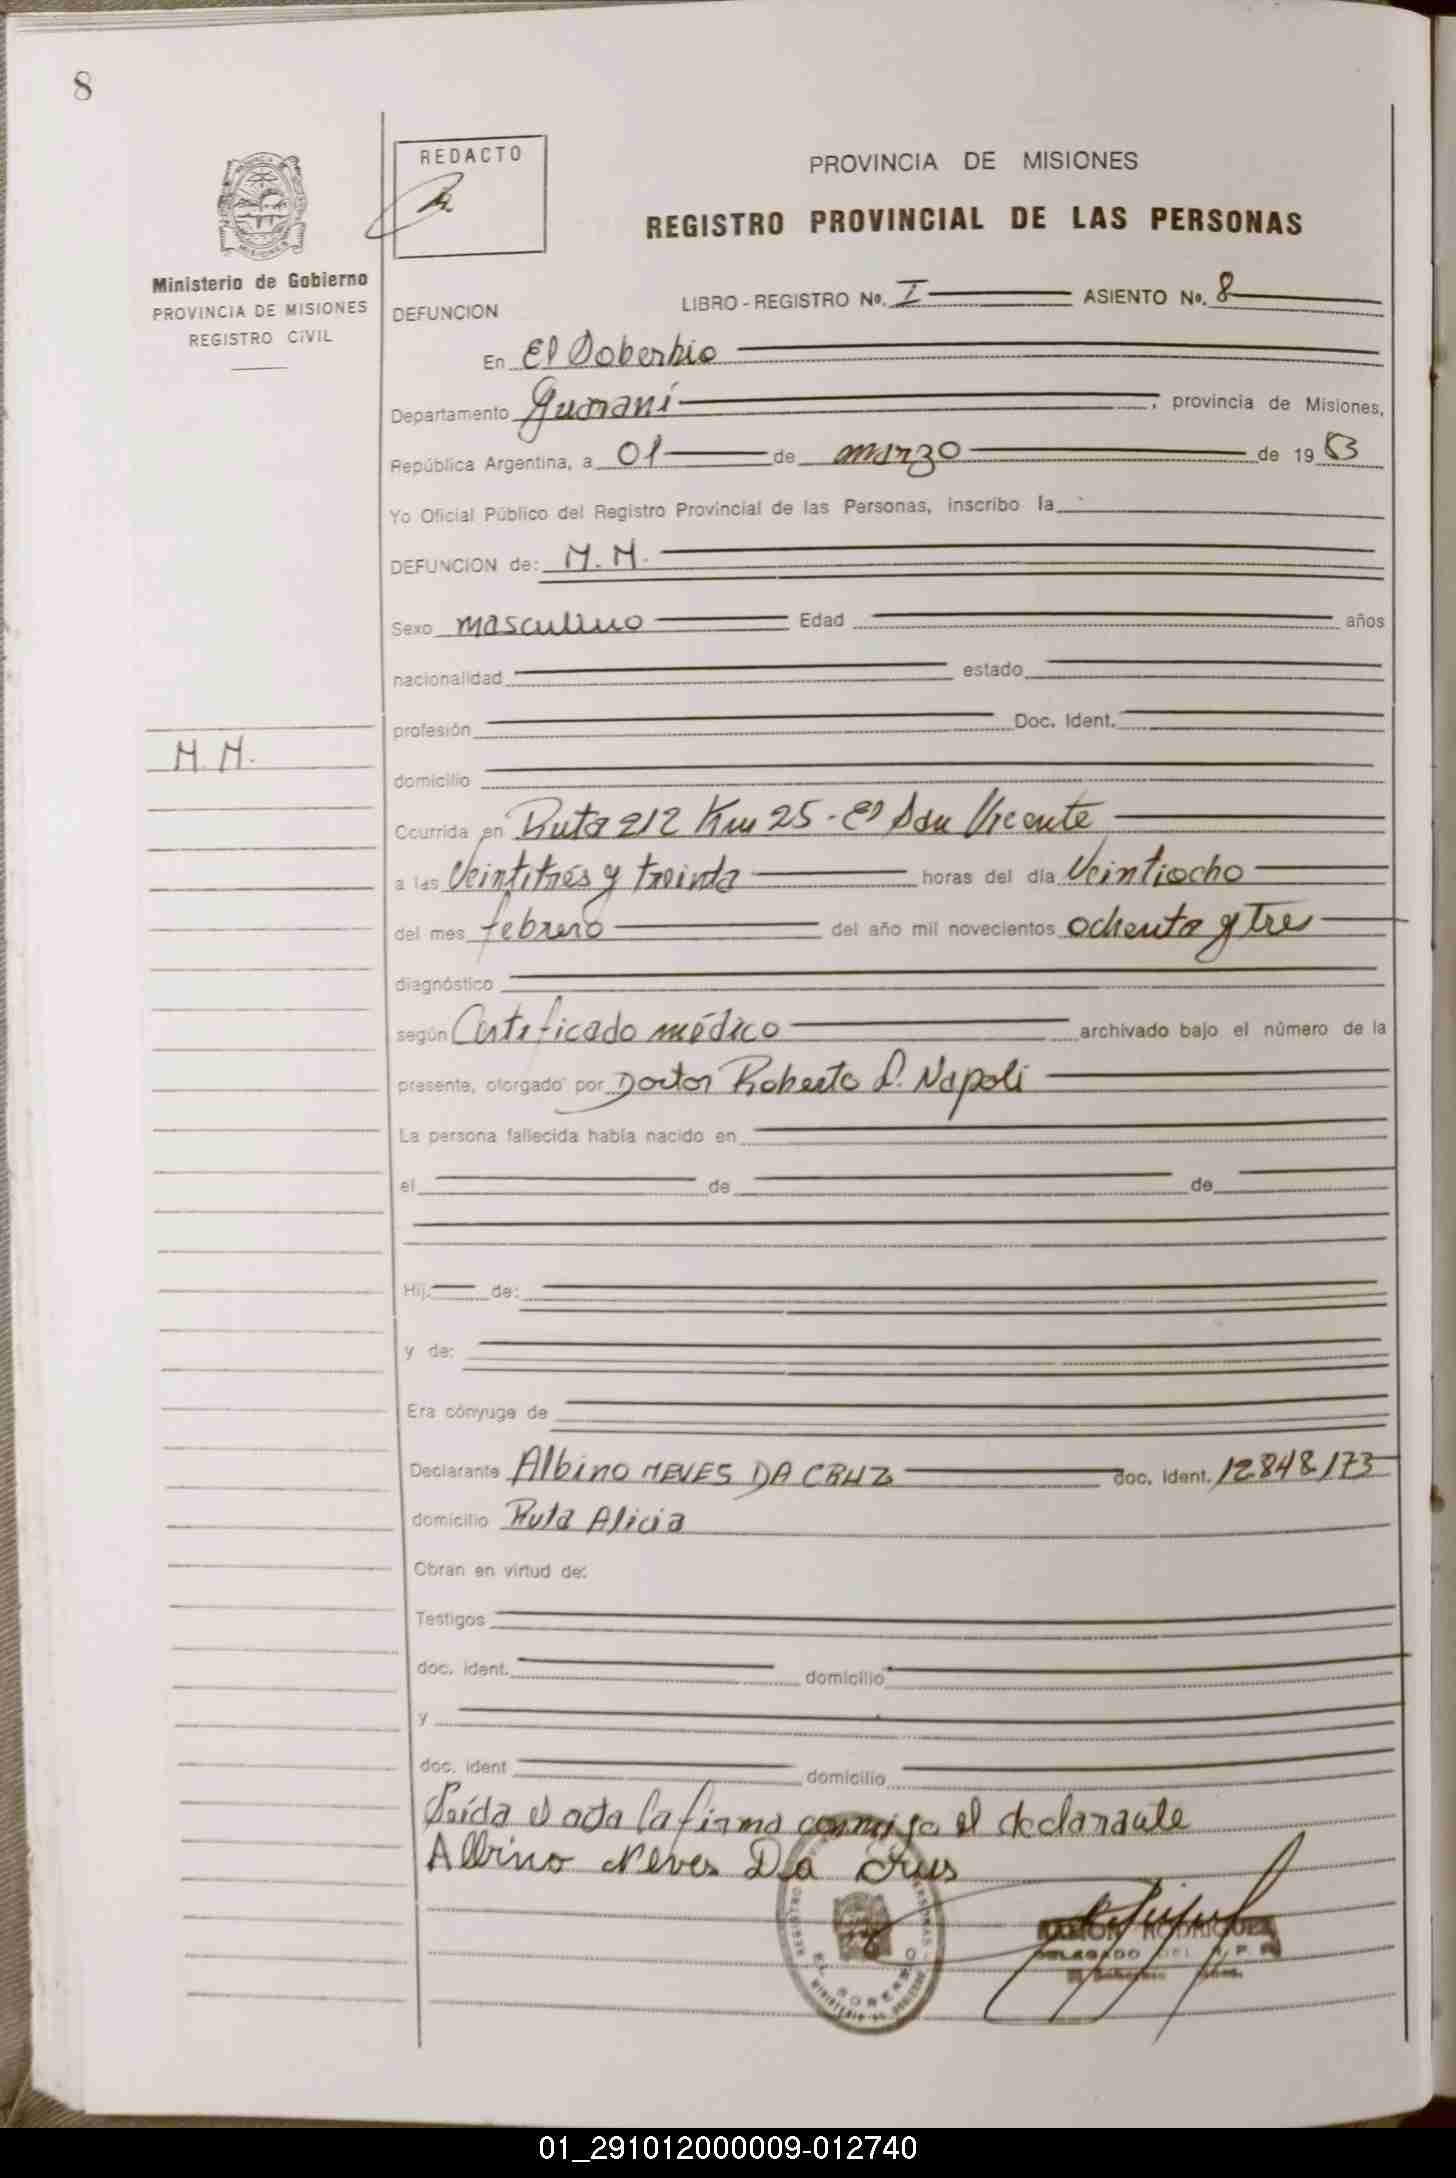 8
REDACTO
PROVINCIA DE MISIONES
REGISTRO PROVINCIAL DE LAS PERSONAS
Ministerio de Gobierno
PROVINCIA DE MISIONES
REGISTRO CIVIL
DEFUNCION LIBRO - REGISTRO No. I ASIENTO No. 8
En El Soberbio
Departamento Guaraní, provincia de Misiones,
República Argentina, a 01 de marzo de 1983
Yo Oficial Público del Registro Provincial de las Personas, inscribo la
DEFUNCION de: N.N.
Sexo masculino Edad años
nacionalidad estado
profesión Doc. Ident.
N.N.
domicilio
Ocurrida en Ruta 212 Km 25 - El San Vicente
a las Veintitrés y treinta horas del día Veintiocho
del mes febrero del año mil novecientos ochenta y tres
diagnóstico
según Certificado médico archivado bajo el número de la
presente, otorgado por Doctor Roberto D. Napoli
La persona fallecida había nacido en
el de de
Hij de:
y de:
Era cónyuge de
Declarante Albino NEVES DA CRUZ doc. ident. 12848173
domicilio Ruta Alicia
Obran en virtud de:
Testigos
doc. ident. domicilio
y
doc. ident domicilio
Leída el acta la firma conmigo el declarante
Albino Neves Da Crus
EL SOBERBIO
RAMON RODRIGUEZ
DELEGADO DEL R. P. P.
El Soberbio
01_291012000009-012740